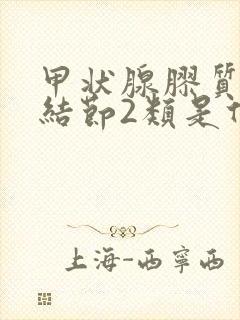 甲状腺膠質
結節2類是什
上海-西寧西